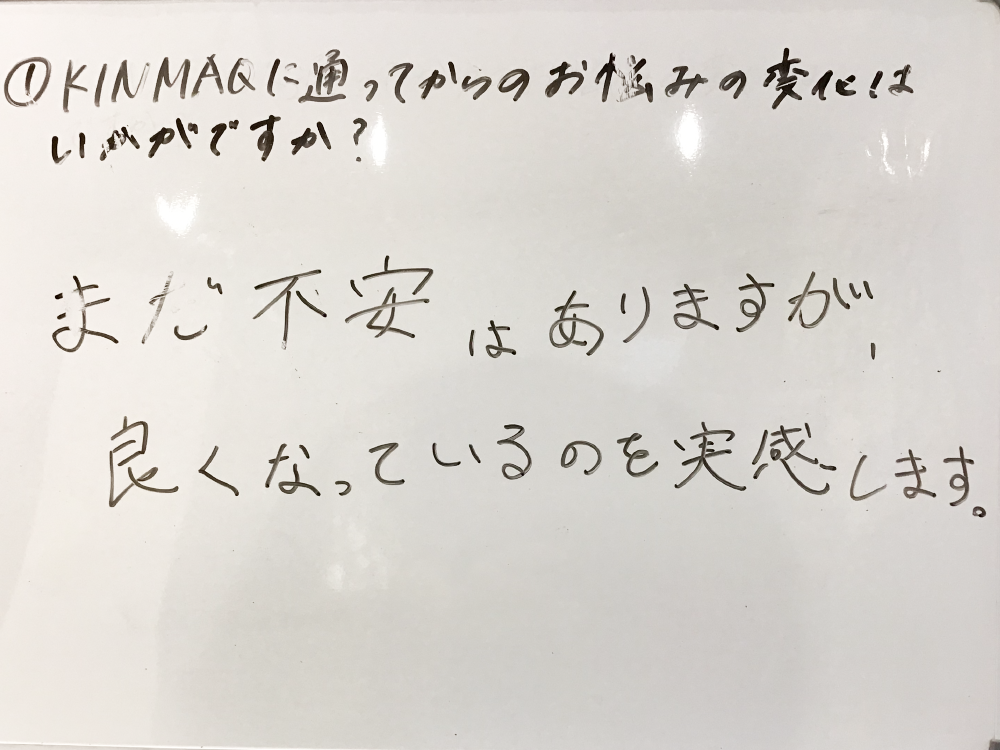 ①KINMAQに通ってからのお悩みの変化は
いかがですか?
まだ不安はありますが、
良くなっているのを実感します。